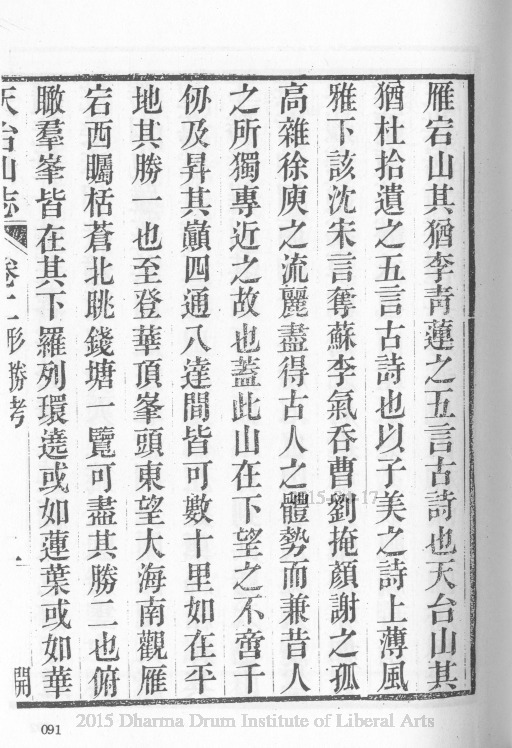 雁宕山其猶李青蓮之五言古詩也天台山其
猶杜拾遺之五言古詩也以子美之詩上薄風
雅下該沈宋言奪蘇李氣吞曹劉掩顏謝之孤
高雜徐庾之流麗盡得古人之體勢而兼昔人
之所獨專近之故也蓋此山在下望之不啻千
仞及昇其巔四通八達間皆可數十里如在平
地其勝一也至登華頂峯頭東望大海南觀雁
宕西矚栝蒼北眺錢塘一覽可盡其勝二也俯
瞰羣峯皆在其下羅列環遶或如蓮葉或如華
天台山志 卷二形勝考 一 開
091
2015 Dharma Drum Institute of Liberal Arts